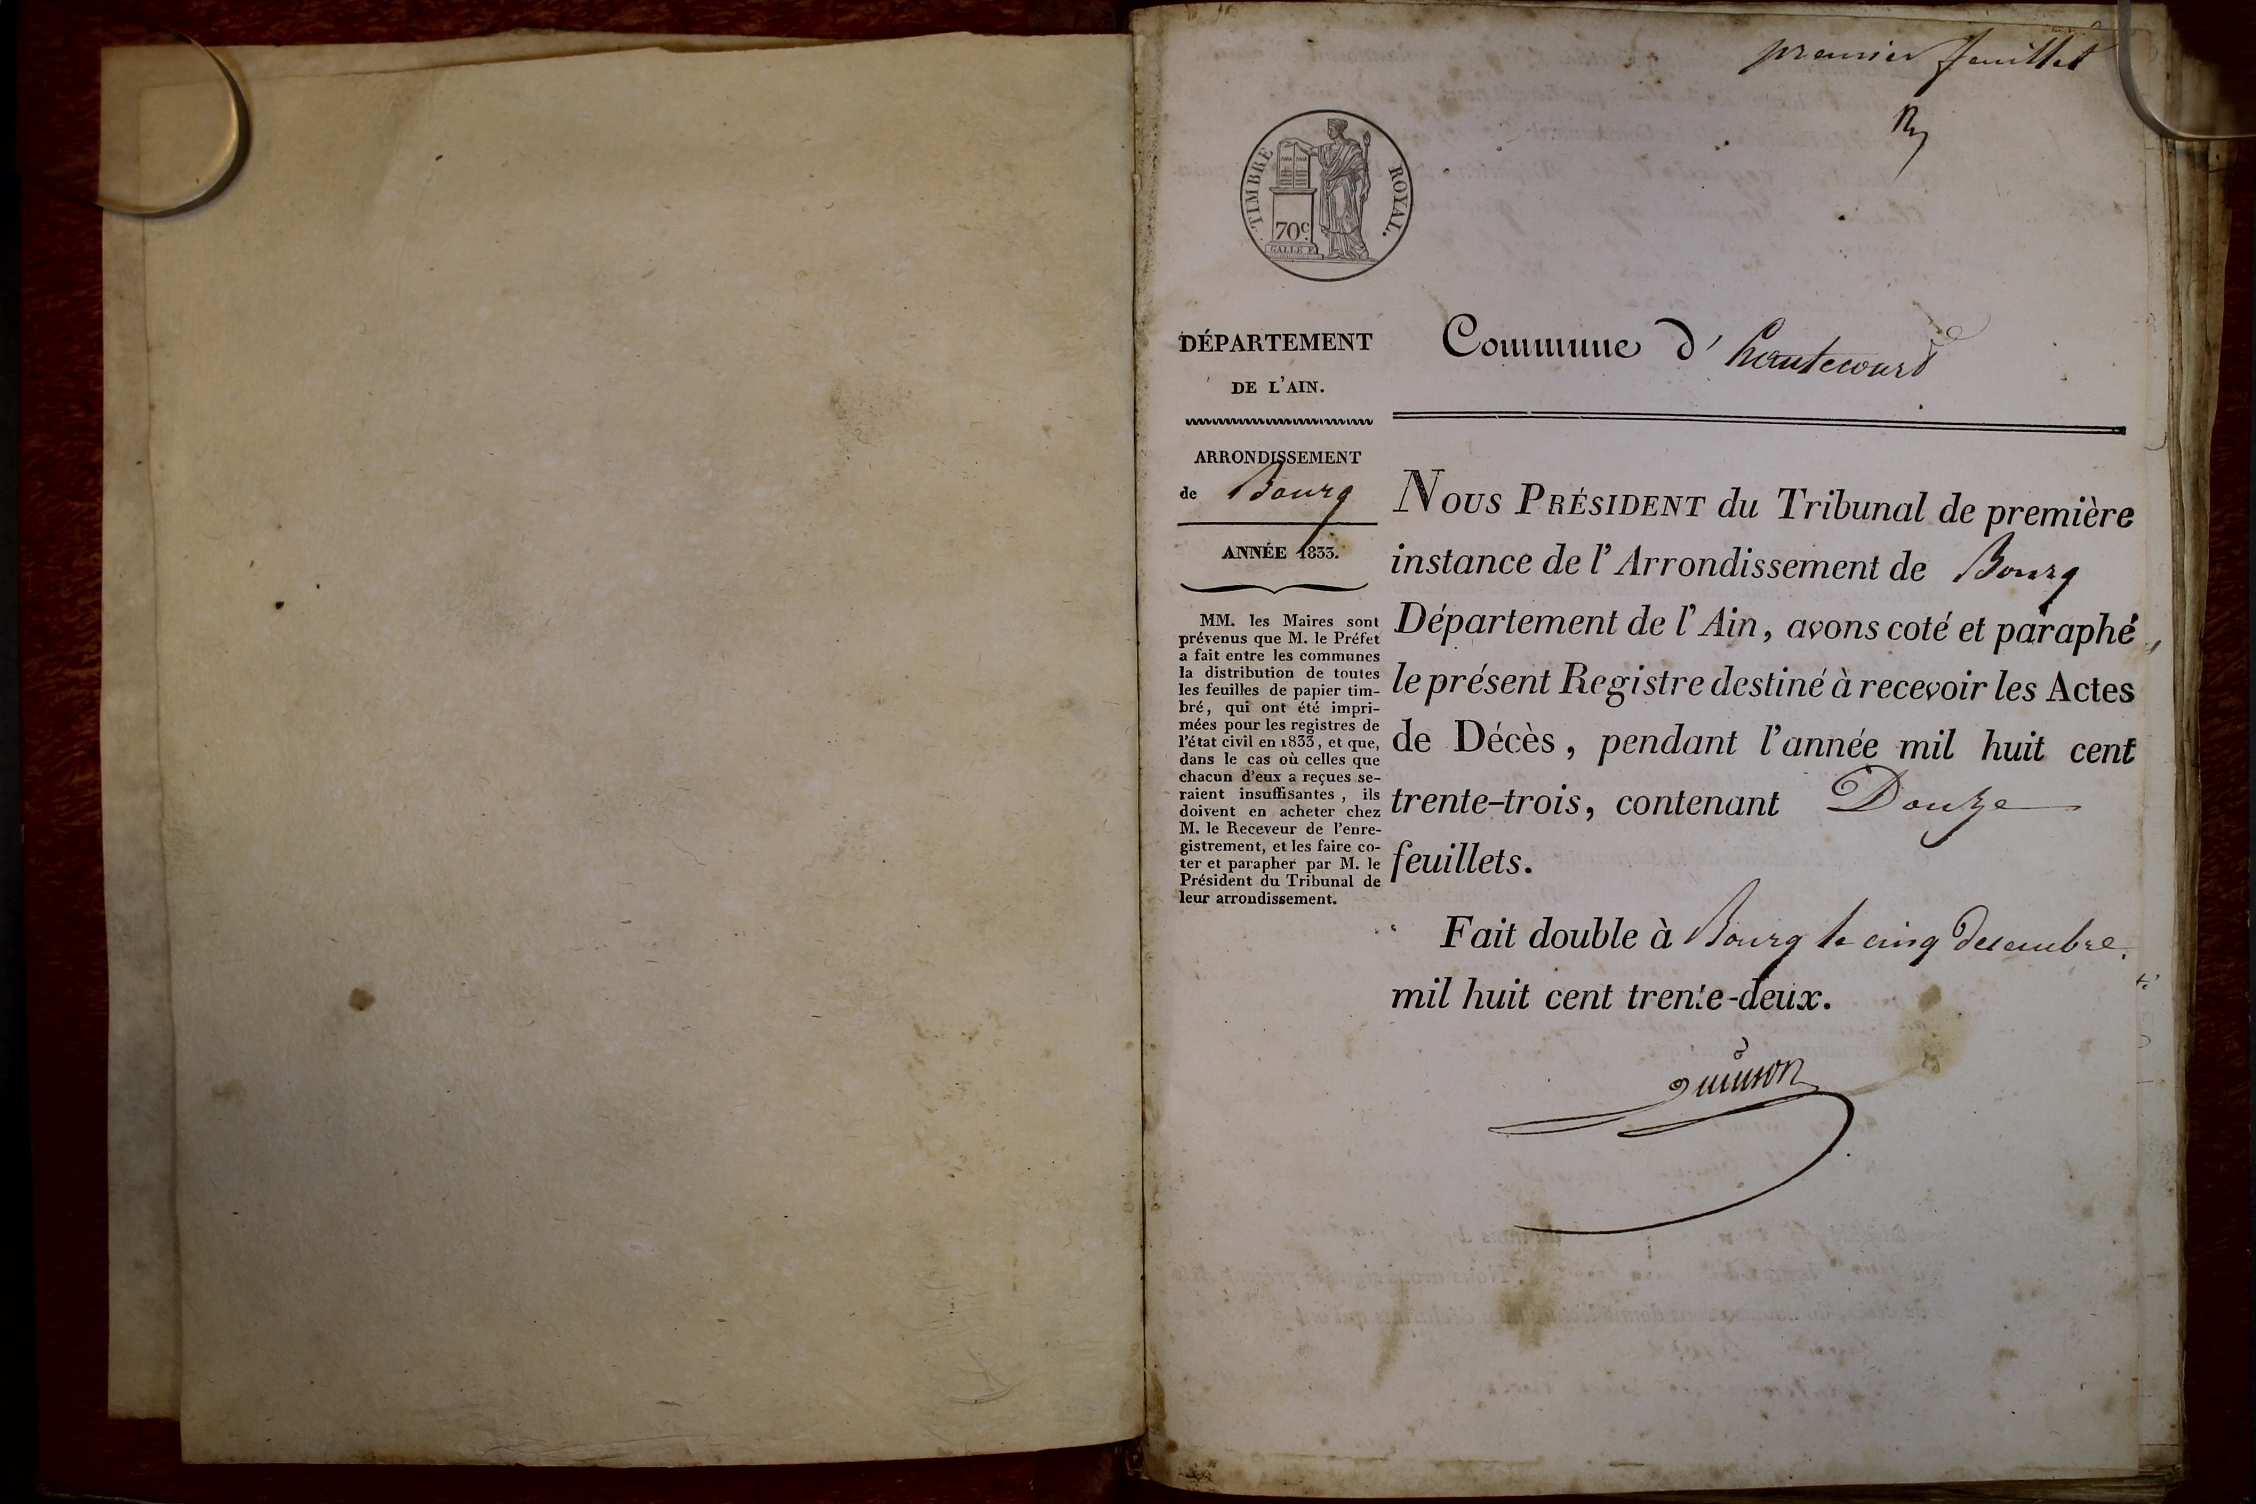 premier feuillet
TIMBRE ROYAL.
70c.
GALLE F.
DÉPARTEMENT
DE L'AIN.
Commune d' hautecourt
ARRONDISSEMENT
de Bourg
ANNÉE 1833.
MM. les Maires sont
prévenus que M. le Préfet
a fait entre les communes
la distribution de toutes
les feuilles de papier tim-
bré, qui ont été impri-
mées pour les registres de
l'état civil en 1833, et que,
dans le cas où celles que
chacun d'eux a reçues se-
raient insuffisantes, ils
doivent en acheter chez
M. le Receveur de l'enre-
gistrement, et les faire co-
ter et parapher par M. le
Président du Tribunal de
leur arrondissement.
NOUS PRÉSIDENT du Tribunal de première
instance de l'Arrondissement de Bourg
Département de l'Ain, avons coté et paraphé,
le présent Registre destiné à recevoir les Actes
de Décès, pendant l'année mil huit cent
trente-trois, contenant Douze
feuillets.
Fait double à Bourg le cinq decembre
mil huit cent trente-deux.